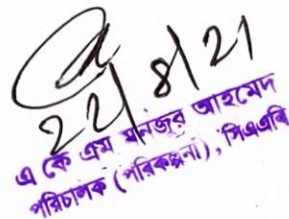 22/8/21
এ কে এম মনজুর আহমেদ
পরিচালক (পরিকল্পনা), পিএএবি